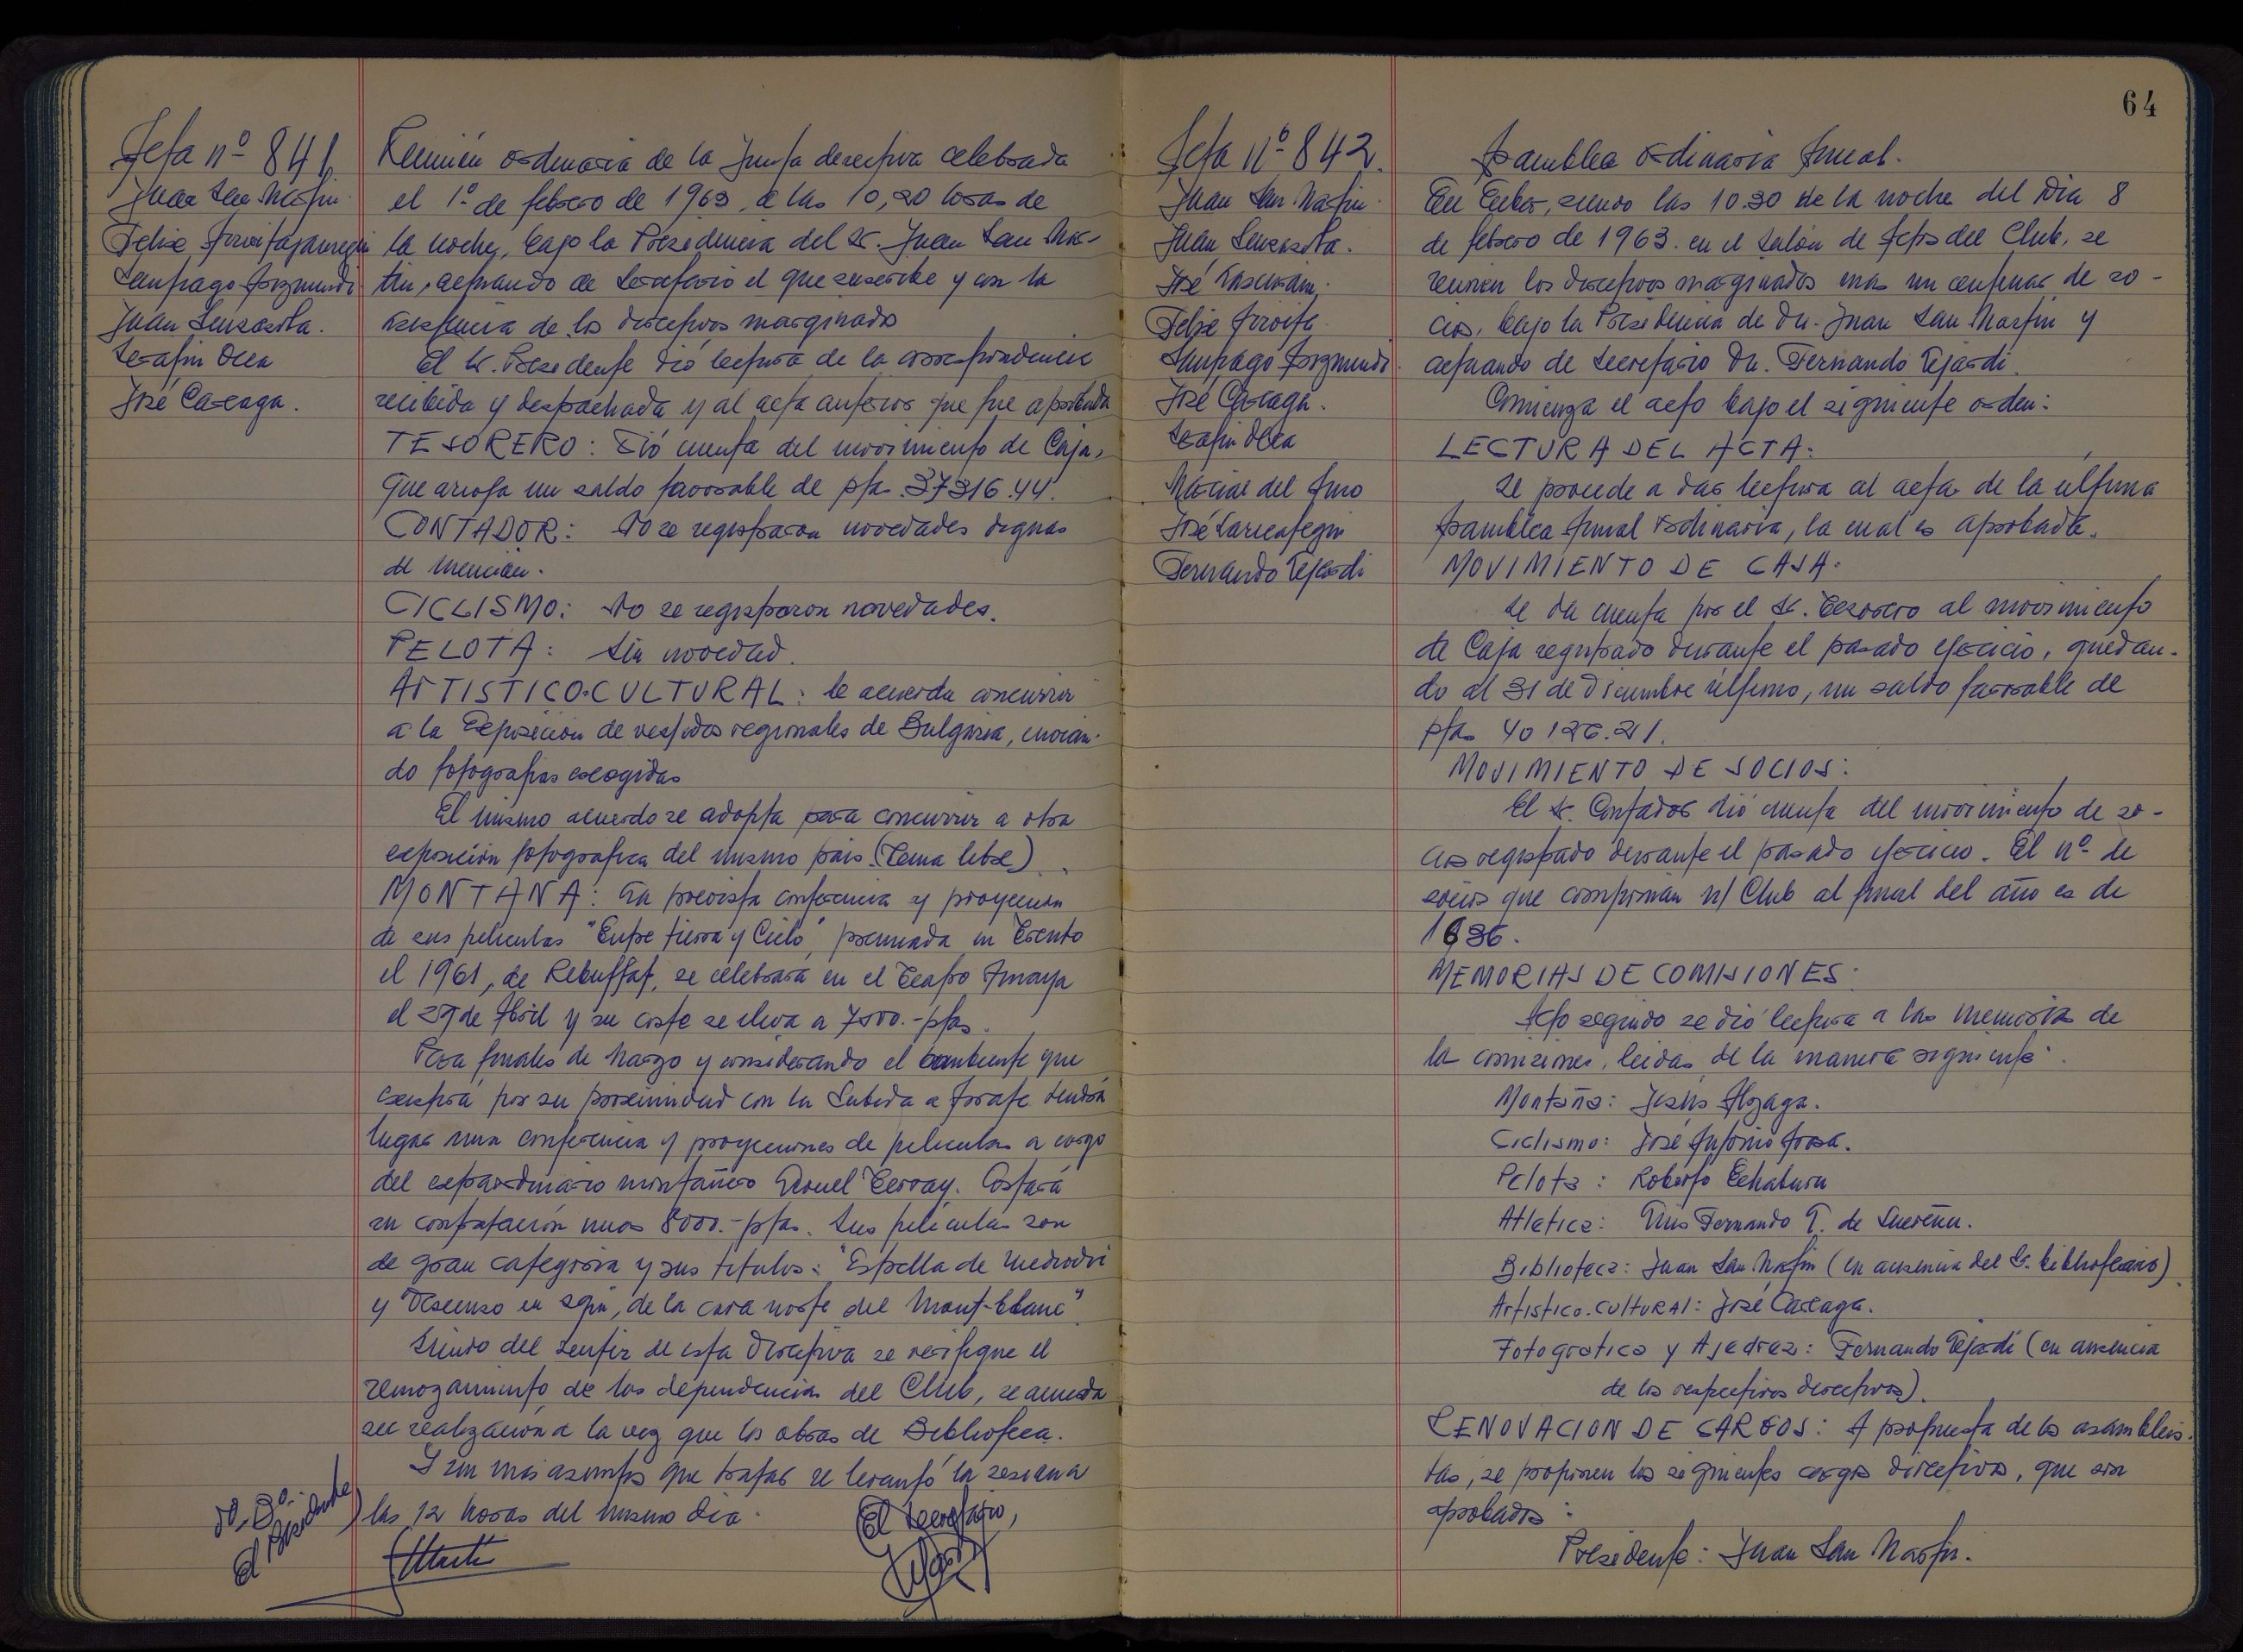 Acta nº 841.
Juan San Martin.
Felix Arreitajauregui
Santiago Arizmendi
Juan Sarasola.
Serafin Olea
José Careaga.
Reunión ordinaria de la Junta directiva celebrada
el 1º de febrero de 1963, a las 10,30 horas de
la noche, bajo la Presidencia del Sr. Juan San Mar-
tin, actuando de Secretario el que suscribe y con la
asistencia de los directivos marginados
El Sr. Presidente dió lectura de la correspondencia
recibida y despachada y al acta anterior que fue aprobada
TESORERO: Dió cuenta del movimiento de Caja,
que arroja un saldo favorable de pts. 37316.44.
CONTADOR: No se registraron novedades dignas
de mención.
CICLISMO: No se registraron novedades.
PELOTA: Sin novedad.
ARTISTICO-CULTURAL: Se acuerda concurrir
a la Exposición de vestidos regionales de Bulgaria, envian-
do fotografias escogidas
El mismo acuerdo se adopta para concurrir a otra
exposición fotografica del mismo pais. (Tema libre)
MONTAÑA: La prevista conferencia y proyección
de sus peliculas "Entre tierra y Cielo", premiada en Trento
el 1961, de Rebuffat, se celebrará en el Teatro Amaya
el 29 de Abril y su coste se eleva a 7500.- ptas.
Para finales de Marzo y considerando el ambiente que
existirá por su proximidad con la Subida a Arrate tendrá
lugar una conferencia y proyecciones de peliculas a cargo
del extraordinario montañero Lionel Terray. Costará
su contratación unas 8000.- ptas. Sus peliculas son
de gran categoria y sus titulos: "Estrella de Mediodia
y "Descenso en sqii, de la cara norte del Mont-blanc".
Siendo del sentir de esta Directiva se verifique el
remozamiento de las dependencias del Club, se acuerda
su realización a la vez que las obras de Biblioteca.
Y sin mas asuntos que tratar se levantó la sesión a
las 12 horas del mismo dia.
Vº. Bº.
El Presidente
El Secretario,
64
Acta Nº 842.
Juan San Martin.
Juan Sarasola.
José
Felix Arreita
Santiago Arizmendi.
José Careaga.
Serafin Olea
Marcial del Amo
José Larreategui
Fernando Tejardi
Asamblea Ordinaria Anual.
En Eibar, siendo las 10.30 de la noche del Dia 8
de febrero de 1963. en el Salón de Actos del Club, se
reunen los directivos marginados mas un centenar de so-
cios, bajo la Presidencia de Dn. Juan San Martin y
actuando de Secretario Dn. Fernando Tejardi.
Comienza el acto bajo el siguiente orden:
LECTURA DEL ACTA:
Se procede a dar lectura al acta de la última
Asamblea Anual Ordinaria, la cual es aprobada.
MOVIMIENTO DE CAJA:
Se da cuenta por el Sr. Tesorero al movimiento
de Caja registrado durante el pasado ejercicio, quedan-
do al 31 de Diciembre último, un saldo favorable de
ptas 40126.21.
MOVIMIENTO DE SOCIOS:
El Sr. Contador dió cuenta del movimiento de so-
cios registrado durante el pasado ejercicio. El nº de
socios que conforman n/ Club al final del año es de
1636.
MEMORIAS DE COMISIONES:
Acto seguido se dió lectura a las memorias de
la comisiones, leidas de la manera siguiente:
Montaña: Jesús Alzaga.
Ciclismo: José Antonio Arosa.
Pelota: Roberto Echaburu
Atletica: Luis Fernando T. de
Biblioteca: Juan San Martin (en ausencia del Sr. bibliotecario)
Artistico.cultural: José Careaga.
Fotografica y Ajedrez: Fernando Tejardi (en ausencia
de los respectivos directivos).
RENOVACION DE CARGOS: A propuesta de los asambleis-
tas, se proponen los siguientes cargos directivos, que son
aprobados:
Presidente: Juan San Martin.